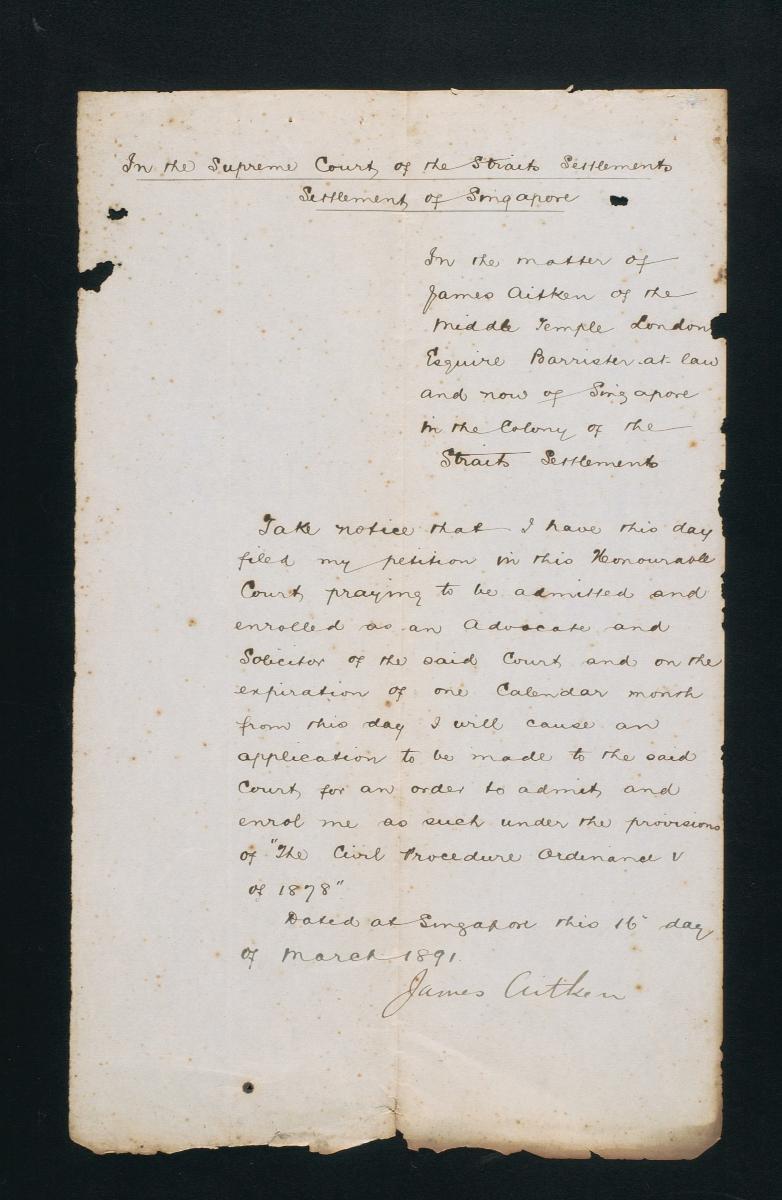 In the Supreme Court of the Straits Settlements
Settlement of Singapore
In the matter of
James Aitken of the
Middle Temple London
Esquire Barrister-at-law
and now of Singapore
in the Colony of the
Straits Settlements
Take notice that I have this day
filed my petition in this Honourable
Court praying to be admitted and
enrolled as an Advocate and
Solicitor of the said Court and on the
expiration of one Calendar month
from this day I will cause an
application to be made to the said
Court for an order to admit and
enrol me as such under the provisions
of "The Civil Procedure Ordinance V
of 1878"
Dated at Singapore this 16 day
of March 1891.
James Aitken